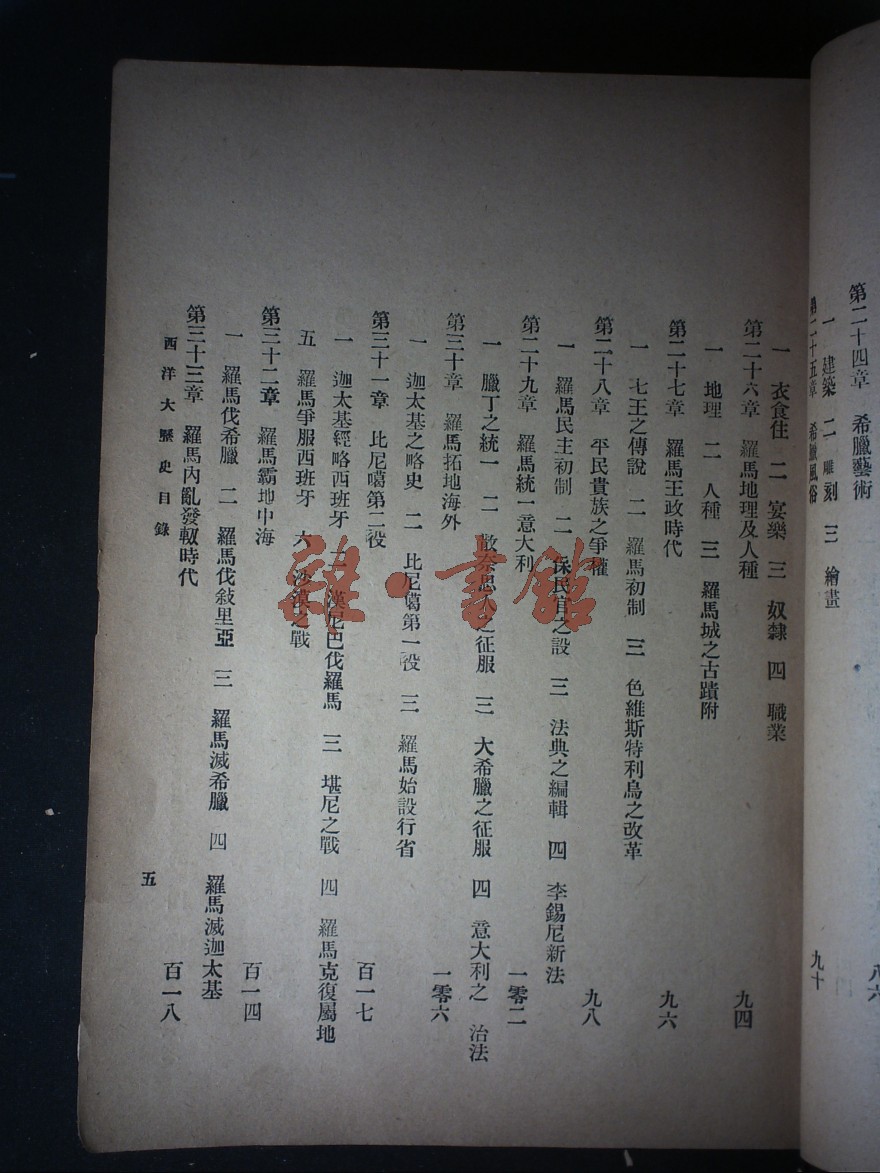 第二十四章 希臘藝術 八六
一 建築 二 雕刻 三 繪畫
第二十五章 希臘風俗 九十
一 衣食住 二 宴樂 三 奴隸 四 職業
第二十六章 羅馬地理及人種 九四
一 地理 二 人種 三 羅馬城之古蹟附
第二十七章 羅馬王政時代 九六
一 七王之傳說 二 羅馬初制 三 色維斯特利烏之改革
第二十八章 平民貴族之爭權 九八
一 羅馬民主初制 二 保民官之設 三 法典之編輯 四 李錫尼新法
第二十九章 羅馬統一意大利 一零二
一 臘丁之統一 二 散奈思人之征服 三 大希臘之征服 四 意大利之 治法
第三十章 羅馬拓地海外 一零六
一 迦太基之略史 二 比尼噶第一役 三 羅馬始設行省
第三十一章 比尼噶第二役 百一七
一 迦太基經略西班牙 二 漢尼巴伐羅馬 三 堪尼之戰 四 羅馬克復屬地
五 羅馬爭服西班牙 六 沙漠之戰
第三十二章 羅馬霸地中海 百一四
一 羅馬伐希臘 二 羅馬伐敍里亞 三 羅馬滅希臘 四 羅馬滅迦太基
第三十三章 羅馬內亂發軔時代 百一八
西洋大歷史目錄 五
雜·書館